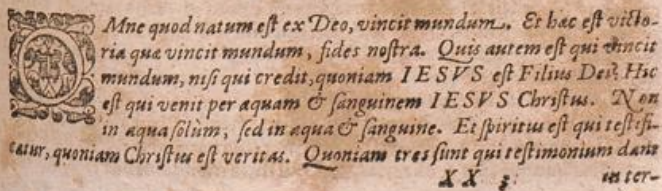 OMne quod natum eſt ex Deo, vincit mundum. Et hæc eſt victo-
ria quæ vincit mundum, fides noſtra. Quis autem eſt qui vincit
mundum, niſi qui credit, quoniam IESVS eſt Filius Dei? Hic
eſt qui venit per aquam & ſanguinem IESVS Chriſtus. Non
in aqua ſolùm, ſed in aqua & ſanguine. Et ſpiritus eſt qui teſtifi-
catur, quoniam Chriſtus eſt veritas. Quoniam tres ſunt qui teſtimonium dant
XX 3 in ter-